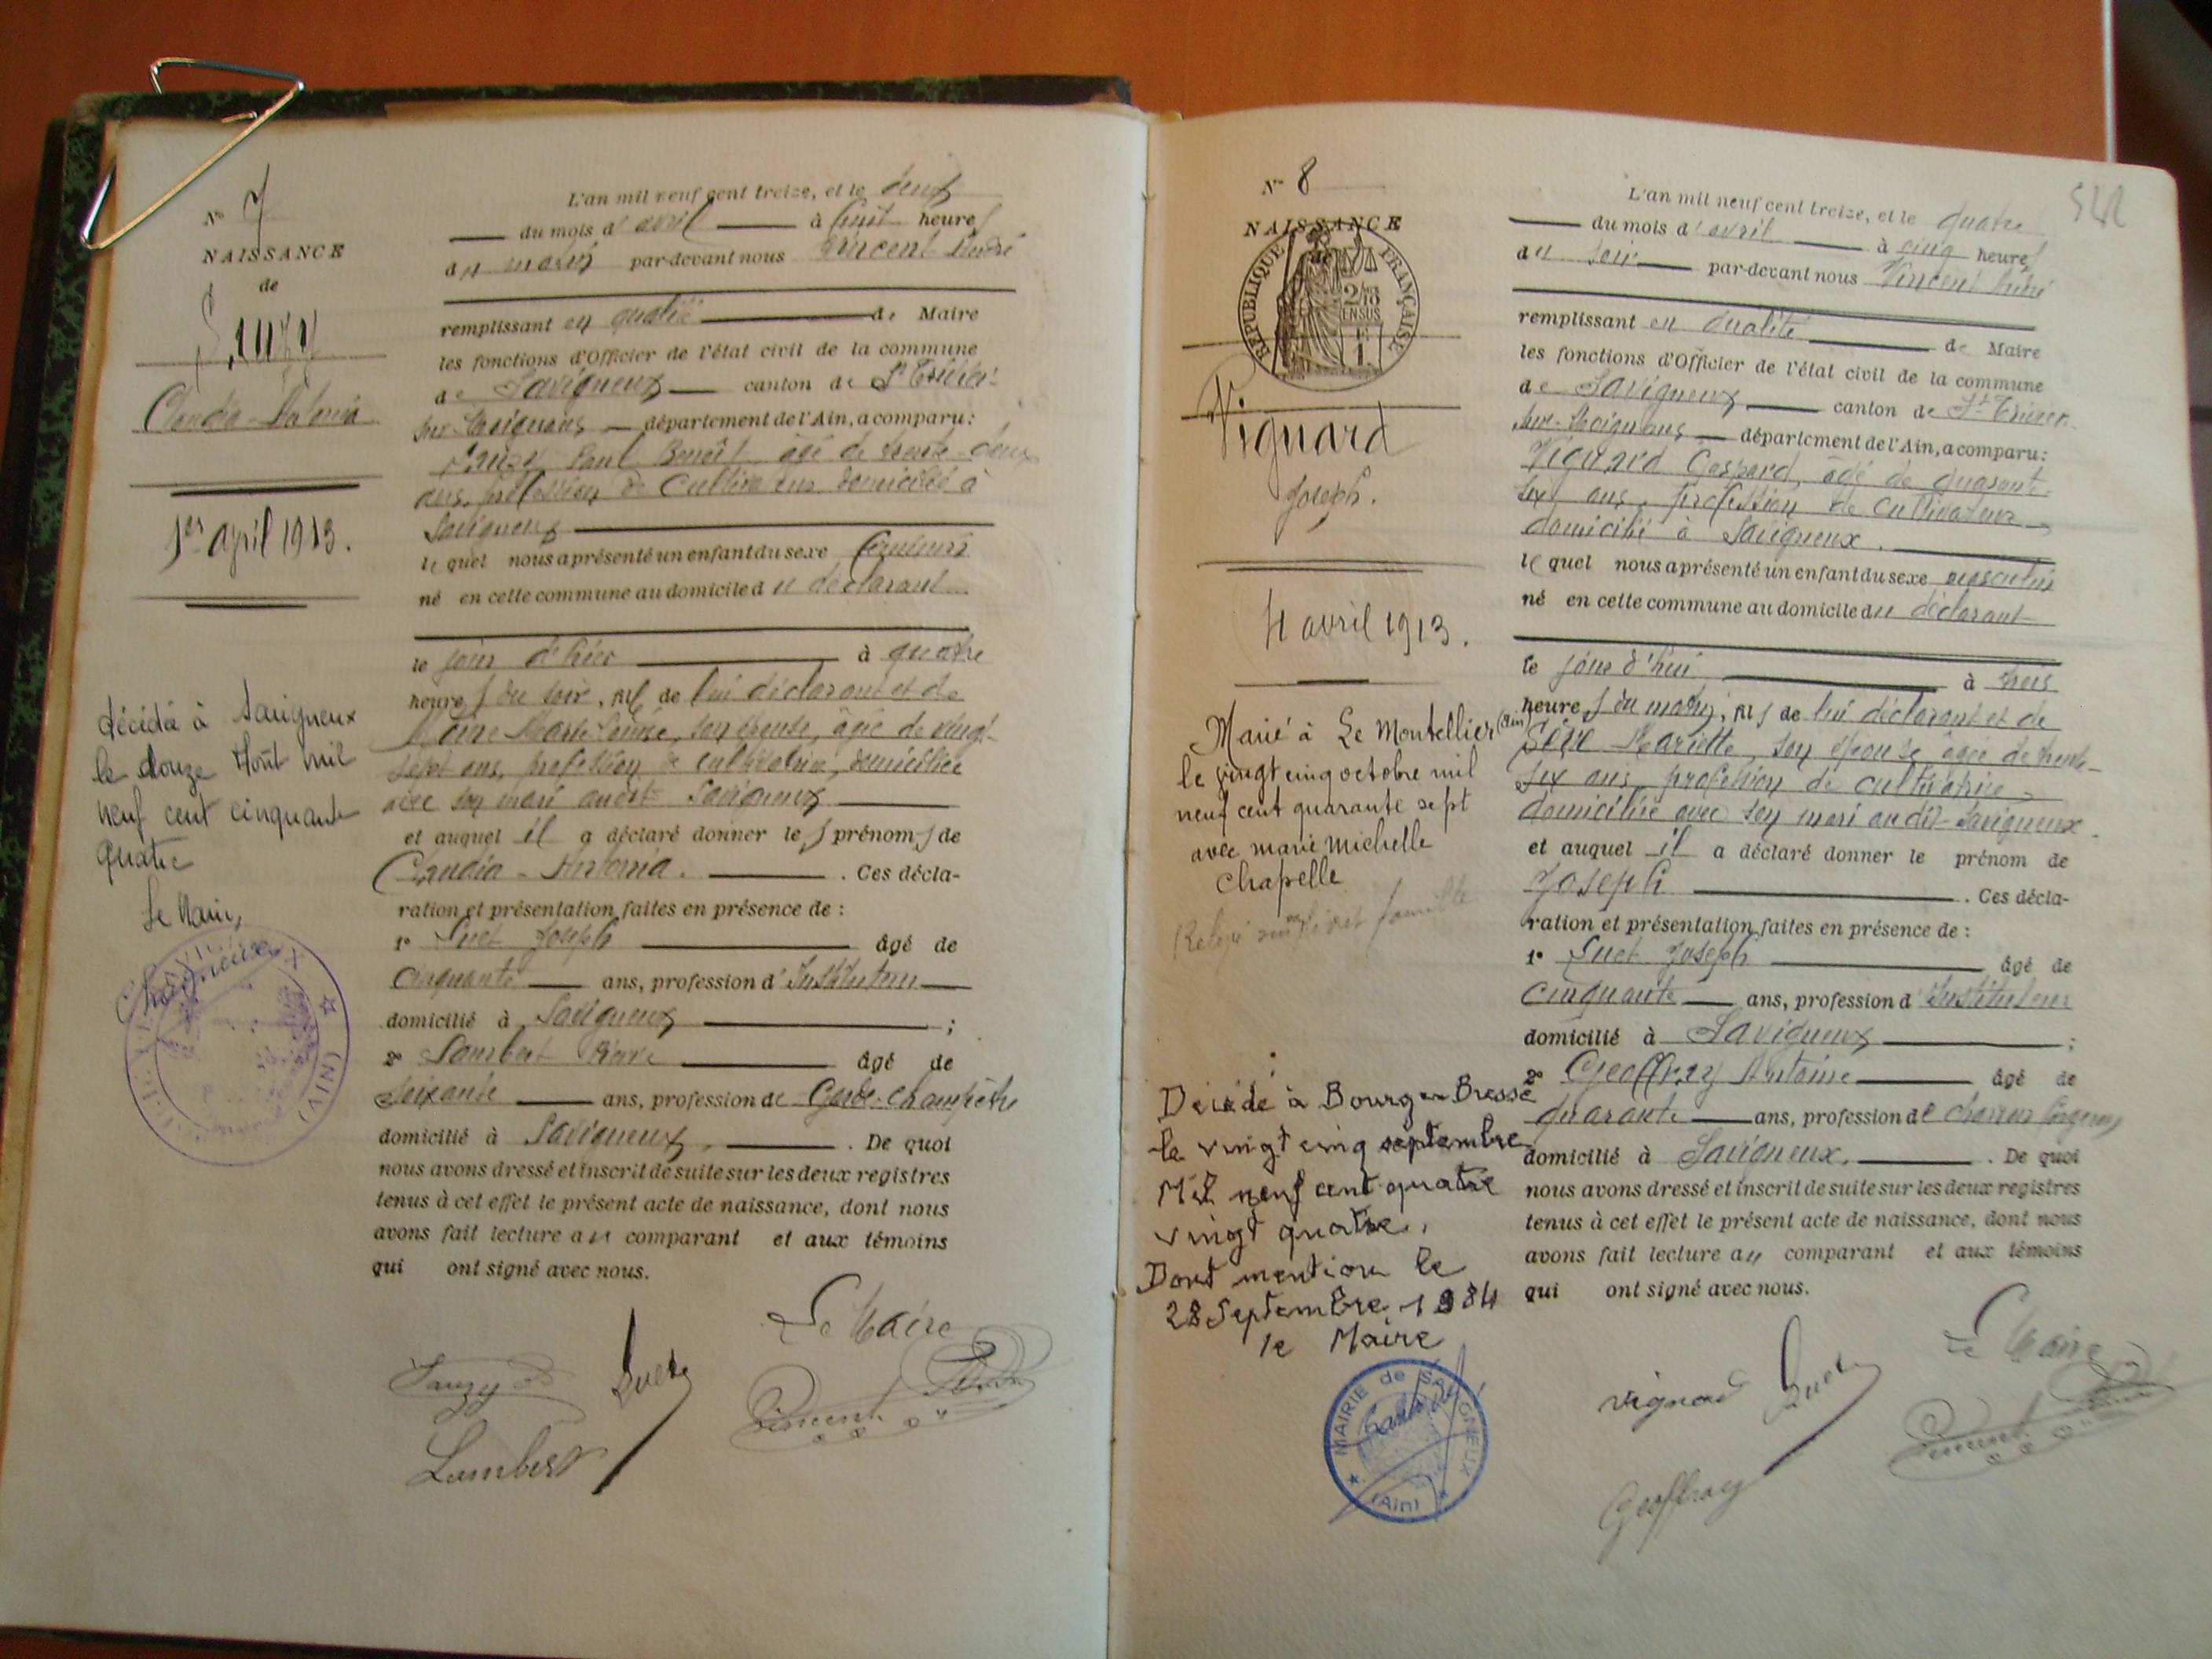 N° 7
NAISSANCE
de
Sauzy
Claudia-Antonia
1er april 1913.
décédée à Savigneux
le douze Août mil
neuf cent cinquante
quatre
Le Maire,
(AIN)
L'an mil neuf cent treize, et le deux
du mois d'avril à huit heures
du matin par-devant nous Vincent André
remplissant en qualité de Maire
les fonctions d'Officier de l'état civil de la commune
de Savigneux canton de St Trivier-
sur-Moignans département de l'Ain, a comparu:
Sauzy Paul Benoît âgé de trente-deux
ans, profession de Cultivateur domicilié à
Savigneux
le quel nous a présenté un enfant du sexe féminin
né en cette commune au domicile du déclarant
le jour d'hier à quatre
heures du soir, fils de lui déclarant et de
Marie Louise, son épouse, âgée de vingt-
sept ans, profession de cultivatrice, domiciliée
avec son mari audit Savigneux
et auquel il a déclaré donner les prénoms de
Claudia-Antonia. Ces décla-
ration et présentation faites en présence de :
1° Suet Joseph âgé de
cinquante ans, profession d'Instituteur
domicilié à Savigneux ;
2° Lambert Pierre âgé de
soixante ans, profession de Garde-champêtre
domicilié à Savigneux. De quoi
nous avons dressé et inscrit de suite sur les deux registres
tenus à cet effet le présent acte de naissance, dont nous
avons fait lecture au comparant et aux témoins
qui ont signé avec nous.
Le Maire
Sauzy Suet
Vincent
Lambert
N° 8
NAISSANCE
REPUBLIQUE FRANÇAISE
2/10
EN SUS
1F
Vignard
Joseph.
4 avril 1913.
Marié à Le Montellier (Ain)
le vingt cinq octobre mil
neuf cent quarante sept
avec marie Michelle
Chapelle
livret famille
Décédé à Bourg en Bresse
le vingt cinq septembre
Mil neuf cent quatre
vingt quatre.
Dont mention le
28 Septembre 1984
le Maire
MAIRIE de SAVIGNEUX
(Ain)
L'an mil neuf cent treize, et le quatre
du mois d'avril à cinq heures
du soir par-devant nous Vincent André
remplissant en qualité de Maire
les fonctions d'Officier de l'état civil de la commune
de Savigneux canton de St Trivier-
sur-Moignans département de l'Ain, a comparu:
Vignard Gaspard, âgé de quarante-
six ans, profession de cultivateur
domicilié à Savigneux.
le quel nous a présenté un enfant du sexe masculin
né en cette commune au domicile du déclarant
le jour d'hui à trois
heures du matin, fils de lui déclarant et de
Mariette, son épouse âgée de trente-
six ans, profession de cultivatrice
domiciliée avec son mari au dit Savigneux.
et auquel il a déclaré donner le prénom de
Joseph. Ces décla-
ration et présentation faites en présence de :
1° Suet Joseph âgé de
cinquante ans, profession d'Instituteur
domicilié à Savigneux ;
2° Geoffray Antoine âgé de
quarante ans, profession de
domicilié à Savigneux. De quoi
nous avons dressé et inscrit de suite sur les deux registres
tenus à cet effet le présent acte de naissance, dont nous
avons fait lecture au comparant et aux témoins
qui ont signé avec nous.
Le Maire
Vignard Suet
Vincent
Geoffray